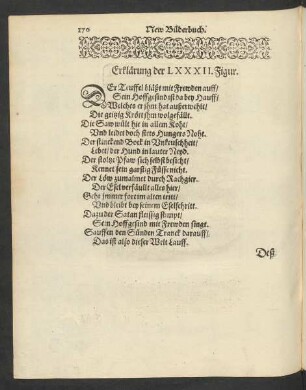 170 New Bilderbuch.
Erklärung der LXXXII. Figur.
DEr Teuffel bläßt mit Frewden auff/
Sein Hoffgesind ist da bey Hauff/
Welches er jhm hat außerwehlt/
Die geitzig Krött jhm wolgefällt.
Die Saw wült hie in allem Koht/
Vnd leidet doch stets Hungers Noht.
Der stinckend Bock in Vnkeuschheit/
Lebet/ der Hund in lauter Neyd.
Der stoltze Pfaw sich selbst besicht/
Kennet sein garstig Füsse nicht.
Der Löw zumalmet durch Rachgier.
Der Esel verfäullt alles hier/
Geht jmmer fort am alten tritt/
Vnd bleibt bey seinem Eselschritt.
Dazu der Satan fleissig stimpt/
Sein Hoffgesind mit Frewden singt.
Sauffen den Sünden Tranck darauff/
Das ist also dieser Welt Lauff.
Deß